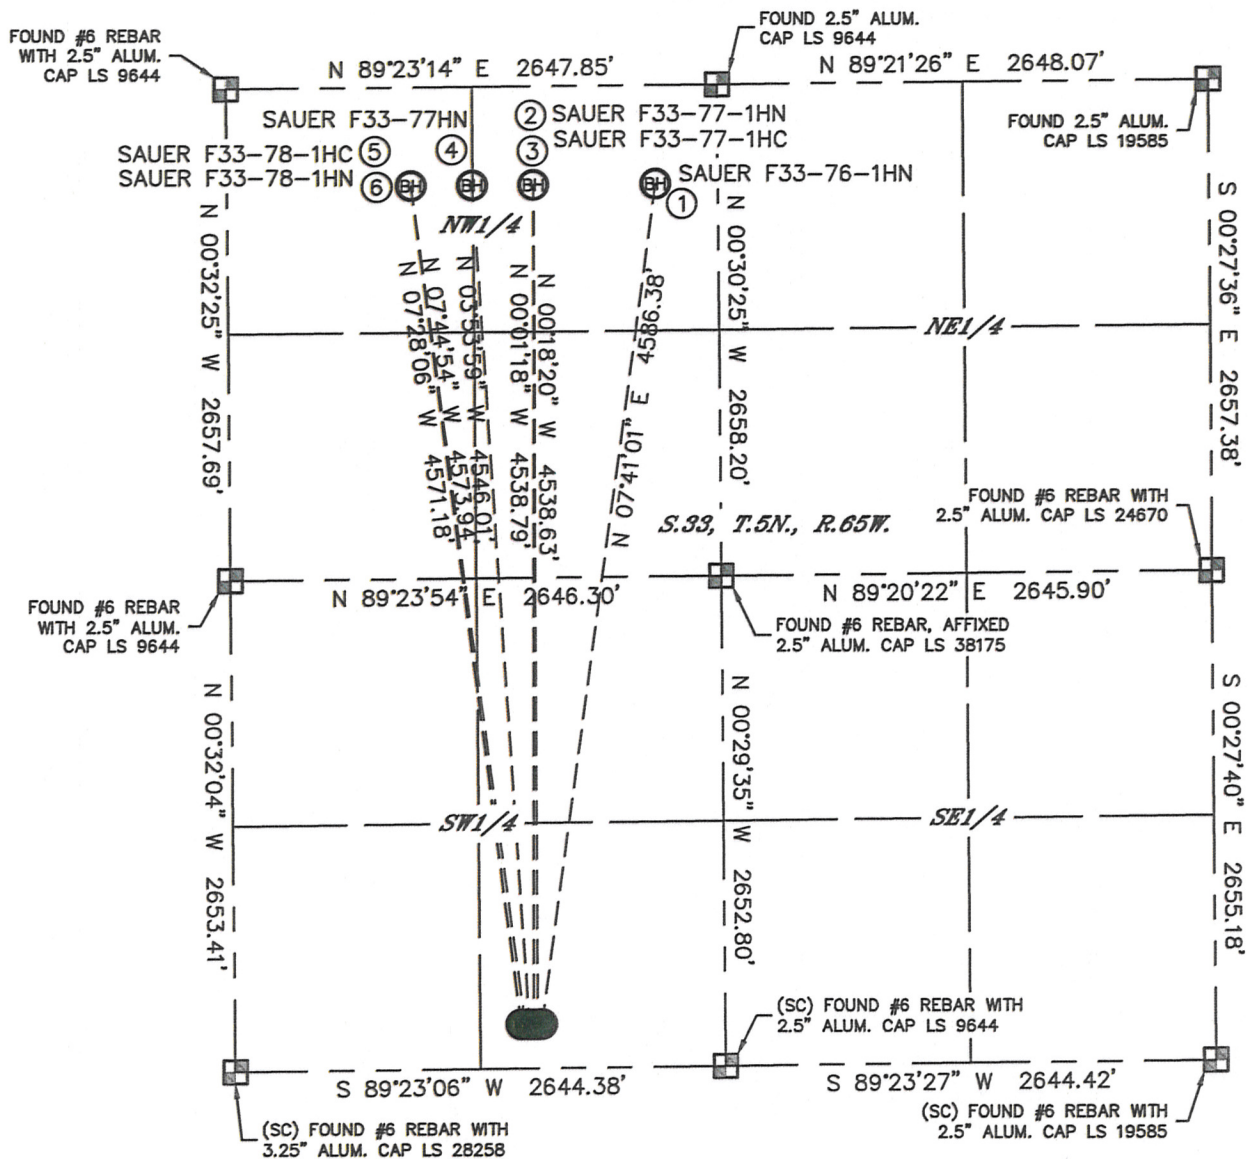 FOUND #6 REBAR
WITH 2.5" ALUM.
CAP LS 9644
FOUND 2.5" ALUM.
CAP LS 9644
N 89°23'14" E 2647.85'
N 89°21'26" E 2648.07'
FOUND 2.5" ALUM.
CAP LS 19585
SAUER F33-77HN
② SAUER F33-77-1HN
SAUER F33-78-1HC ⑤
④
③ SAUER F33-77-1HC
SAUER F33-78-1HN ⑥
BH
BH
BH
BH
SAUER F33-76-1HN
①
NW1/4
NE1/4
N 00°32'25" W 2657.69'
N 07°28'06" W 4571.18'
N 07°44'54" W 4573.94'
N 03°53'59" W 4546.01'
N 00°01'18" W 4538.79'
N 00°18'20" W 4538.63'
N 07°41'01" E 4586.38'
N 00°30'25" W 2658.20'
S 00°27'36" E 2657.38'
FOUND #6 REBAR WITH
2.5" ALUM. CAP LS 24670
S.33, T.5N., R.65W.
N 89°23'54" E 2646.30'
N 89°20'22" E 2645.90'
FOUND #6 REBAR
WITH 2.5" ALUM.
CAP LS 9644
FOUND #6 REBAR, AFFIXED
2.5" ALUM. CAP LS 38175
N 00°32'04" W 2653.41'
N 00°29'35" W 2652.80'
S 00°27'40" E 2655.18'
SW1/4
SE1/4
(SC) FOUND #6 REBAR WITH
2.5" ALUM. CAP LS 9644
S 89°23'06" W 2644.38'
S 89°23'27" W 2644.42'
(SC) FOUND #6 REBAR WITH
3.25" ALUM. CAP LS 28258
(SC) FOUND #6 REBAR WITH
2.5" ALUM. CAP LS 19585